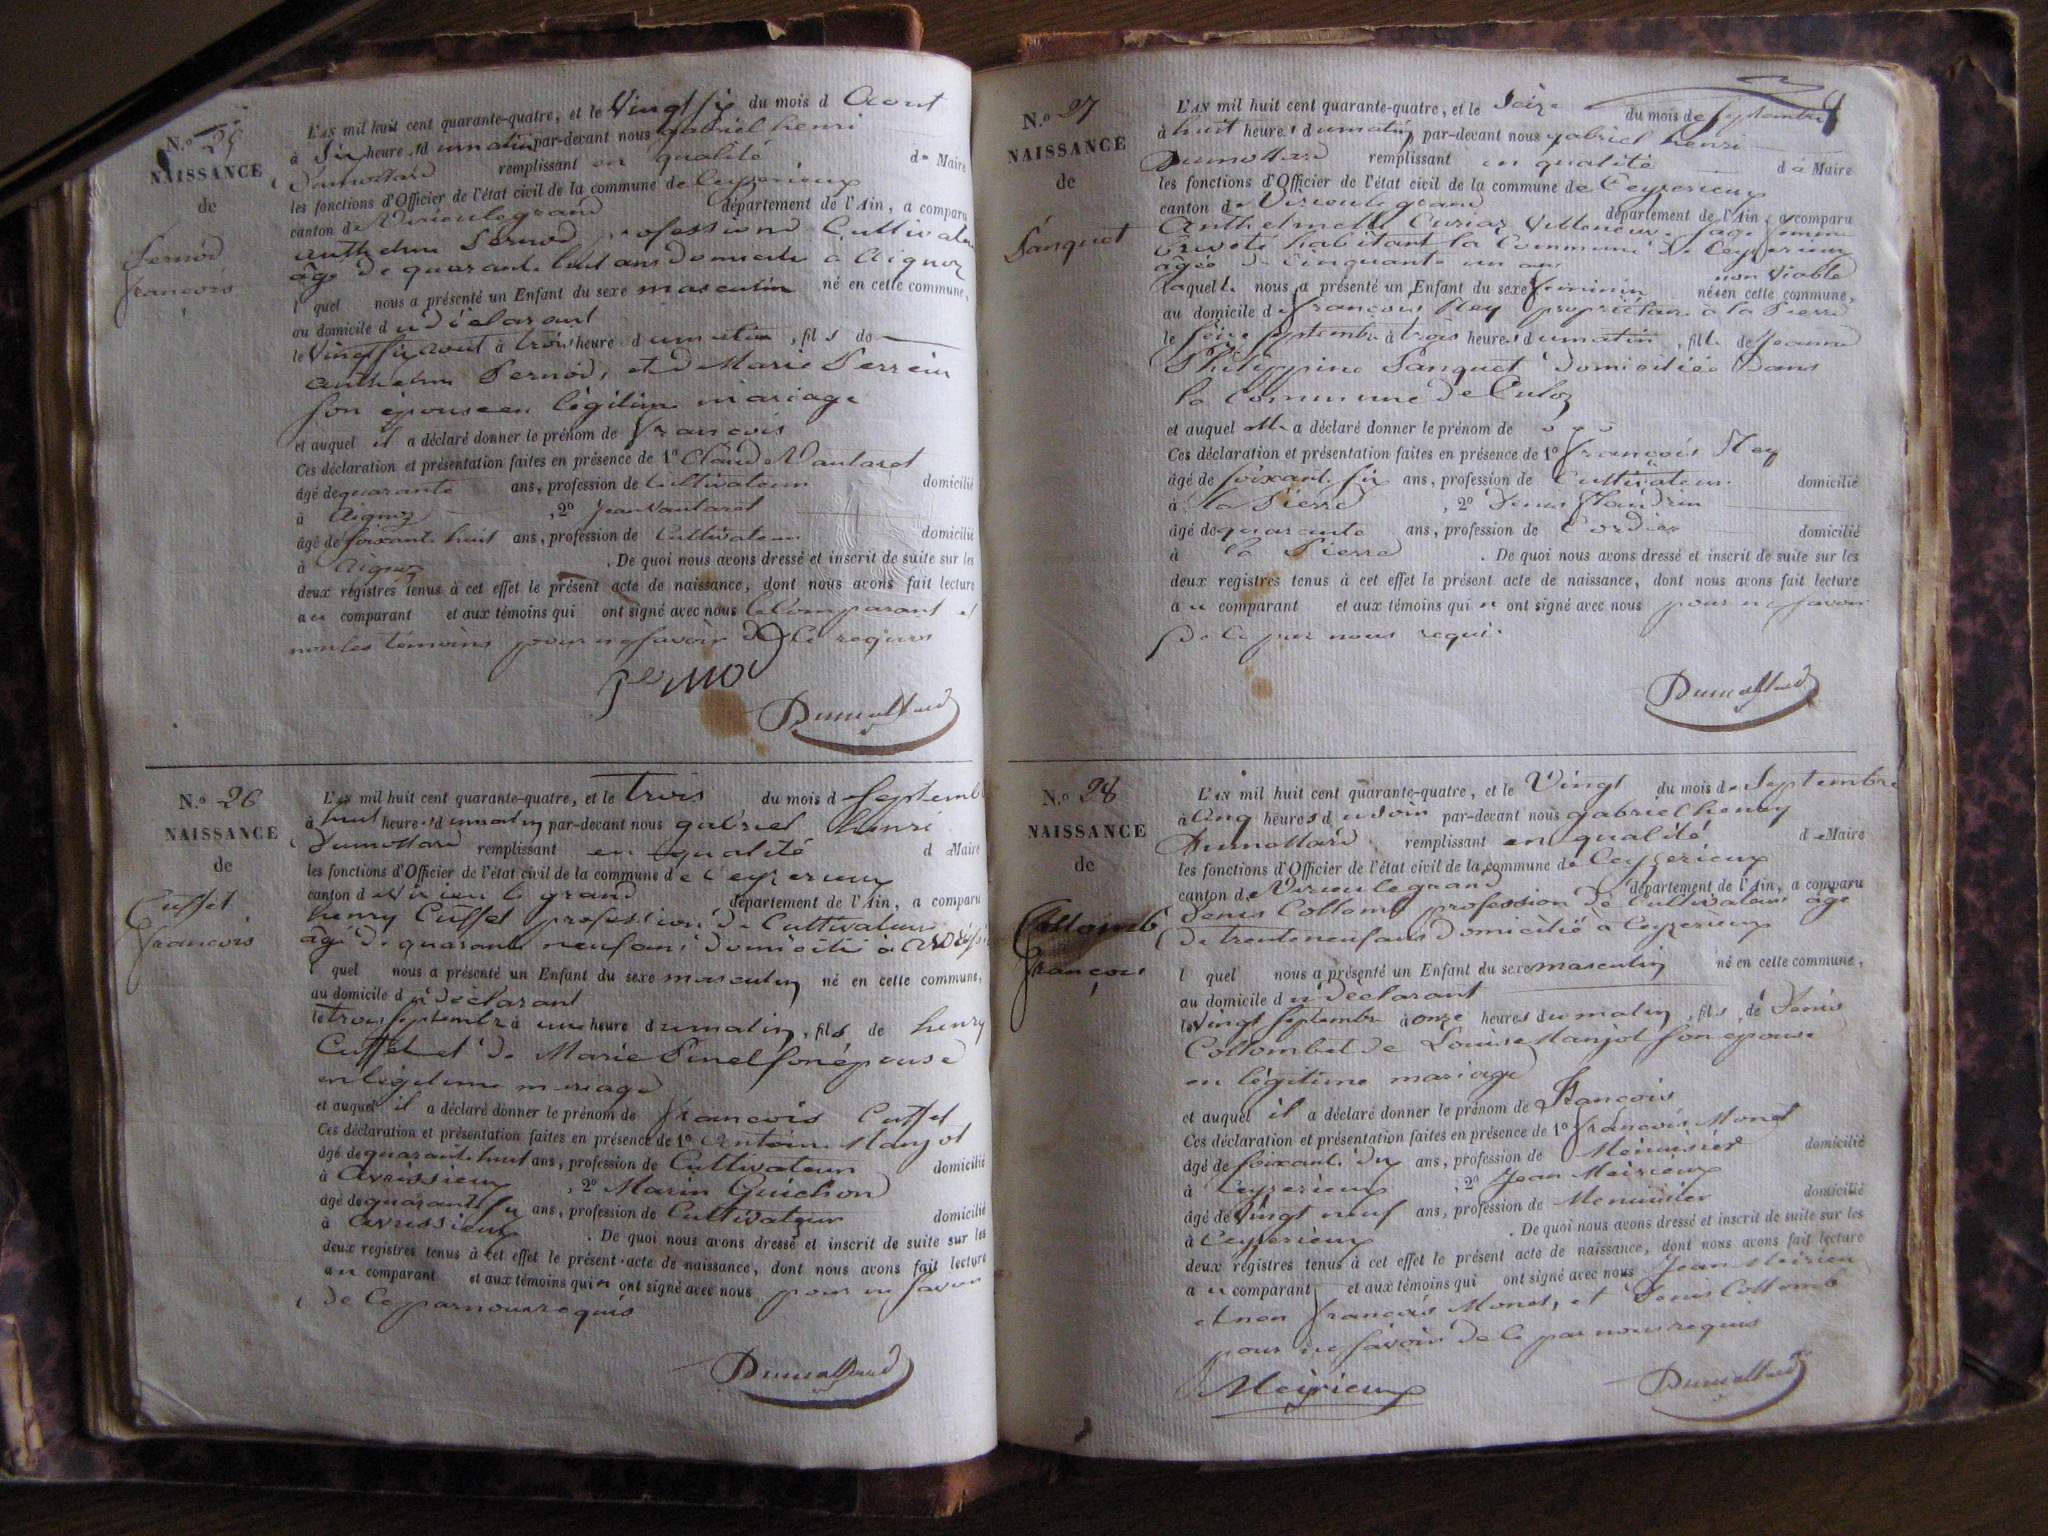 N.o 25
NAISSANCE
de
Pernod
François
L'AN mil huit cent quarante-quatre, et le Vingt six du mois d Aout
à Six heure s d umatin par-devant nous gabriel henri
Dumollard remplissant en qualité de Maire
les fonctions d'Officier de l'état civil de la commune de Ceyzerieux
canton de Virieulegrand département de l'Ain, a comparu
anthelme Pernod profession d Cultivateur
âgé de quarante huit ans domicilié a Aignoz
l quel nous a présenté un Enfant du sexe masculin né en cette commune,
au domicile d u déclarant
le Vingt six aout à trois heure d umatin, fil s de
anthelme Pernod, et d Marie Perrein
son épouse en légitime mariage
et auquel il a déclaré donner le prénom de François
Ces déclaration et présentation faites en présence de 1o Claude Vautaret
âgé de quarante ans, profession de Cultivateur domicilié
à Aignoz , 2o Jean Vautaret
âgé de soixante huit ans, profession de Cultivateur domicilié
à Aignoz . De quoi nous avons dressé et inscrit de suite sur les
deux registres tenus à cet effet le présent acte de naissance, dont nous avons fait lecture
a u comparant et aux témoins qui ont signé avec nous le Comparant et
non les témoins pour ne savoir de ce requis
Pernod
Dumollard
N.o 26
NAISSANCE
de
Cuffet
François
L'AN mil huit cent quarante-quatre, et le trois du mois d Septemb
à huit heure s d umatin par-devant nous gabriel henri
Dumollard remplissant en qualité d e Maire
les fonctions d'Officier de l'état civil de la commune d e Ceyzerieux
canton d e Virieu le grand département de l'Ain, a comparu
henry Cuffet profession de Cultivateur
âgé de quarante neuf ans domicilié à
l quel nous a présenté un Enfant du sexe masculin né en cette commune,
au domicile d u déclarant
le trois septembre à une heure d umatin, fil s de henry
Cuffet et de Marie Pinel son épouse
en légitime mariage
et auquel il a déclaré donner le prénom de François Cuffet
Ces déclaration et présentation faites en présence de 1o Antoine Manjot
âgé de quarante huit ans, profession de Cultivateur domicilié
à avrissieux , 2o Marin Guichon
âgé de quarante six ans, profession de Cultivateur domicilié
à avrissieux . De quoi nous avons dressé et inscrit de suite sur les
deux registres tenus à cet effet le présent acte de naissance, dont nous avons fait lecture
a u comparant et aux témoins qui n ont signé avec nous pour ne savoir
de ce par nous requis
Dumollard
N.o 27
NAISSANCE
de
Panquet
L'AN mil huit cent quarante-quatre, et le Seize du mois de Septembre
à huit heure s d umatin par-devant nous gabriel henri
Dumollard remplissant en qualité d e Maire
les fonctions d'Officier de l'état civil de la commune de Ceyzerieux
canton de Virieulegrand département de l'Ain, a comparu
Villeneuve sage femme
habitant la Commune de Ceyzerieux
âgée de Cinquante un ans non viable
laquelle nous a présenté un Enfant du sexe feminin né en cette commune,
au domicile d e françois Rey propriétaire à la Pierre
le seize septembre à trois heure s d umatin, fill e de Jeanne
Philippine Panquet domiciliée dans
la Commune de Culoz
et auquel elle a déclaré donner le prénom de
Ces déclaration et présentation faites en présence de 1o françois Rey
âgé de soixante six ans, profession de Cultivateur domicilié
à la Pierre , 2o Denis Flandrin
âgé de quarante ans, profession de Cordier domicilié
à la Pierre . De quoi nous avons dressé et inscrit de suite sur les
deux registres tenus à cet effet le présent acte de naissance, dont nous avons fait lecture
a u comparant et aux témoins qui n ont signé avec nous pour ne savoir
de ce par nous requis
Dumollard
N.o 28
NAISSANCE
de
Collomb
François
L'AN mil huit cent quarante-quatre, et le Vingt du mois de Septembre
à Cinq heure s d u soir par-devant nous gabriel henry
Dumollard remplissant en qualité d e Maire
les fonctions d'Officier de l'état civil de la commune de Ceyzerieux
canton de Virieulegrand département de l'Ain, a comparu
Denis Collomb profession de Cultivateur âgé
de trente neuf ans domicilié à Ceyzerieux
l quel nous a présenté un Enfant du sexe masculin né en cette commune,
au domicile d u déclarant
le Vingt Septembre à onze heure s d umatin, fil s de Denis
Collomb et de Louise Manjot son épouse
en légitime mariage
et auquel il a déclaré donner le prénom de François
Ces déclaration et présentation faites en présence de 1o François Monet
âgé de soixante dix ans, profession de Menuisier domicilié
à Ceyzerieux , 2o Jean Meirieux
âgé de Vingt neuf ans, profession de Menuisier domicilié
à Ceyzerieux . De quoi nous avons dressé et inscrit de suite sur les
deux registres tenus à cet effet le présent acte de naissance, dont nous avons fait lecture
a u comparant et aux témoins qui ont signé avec nous Jean Meirieu
et non François Monet, et Denis Collomb
pour ne savoir de ce par nous requis
Meirieux
Dumollard